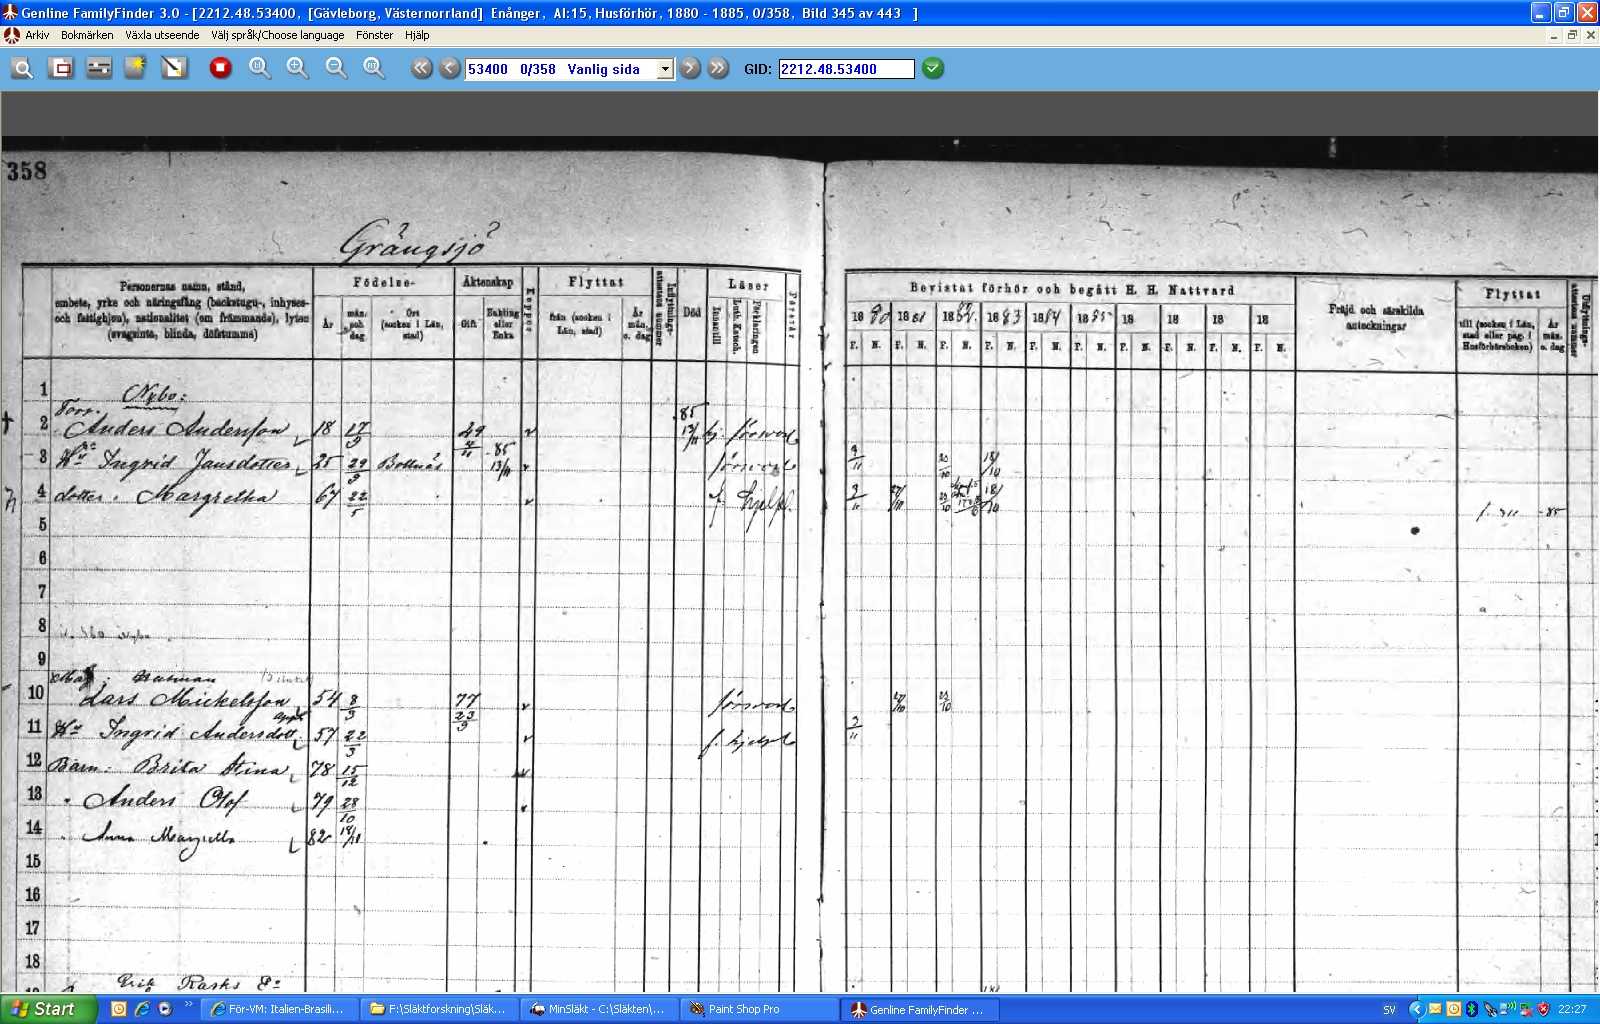 Genline FamilyFinder 3.0 - [2212.48.53400, [Gävleborg, Västernorrland] Enånger, AI:15, Husförhör, 1880 - 1885, 0/358, Bild 345 av 443 ]
Arkiv Bokmärken Växla utseende Välj språk/Choose language Fönster Hjälp
53400 0/358 Vanlig sida GID: 2212.48.53400
358
Grängsjö
Personernas namn, stånd,
embete, yrke och näringsfång (backstugu-, inhyses-
och fattighjon), nationalitet (om främmande), lyten
(svagsinta, blinda, döfstumma)
Födelse-
År
mån. och dag
Ort (socken i Län, stad)
Äktenskap
Gift
Enkling eller Enka
Koppor
Flyttat
från (socken i Län, stad)
År mån. o. dag
Inflyttnings-attestens nummer
Död
Läser
Innantill
Luth. Katech.
Förklaringen
Förstår
Bevistat förhör och begått H. H. Nattvard
18 80 18 81 18 82 18 83 18 84 18 85 18 18 18 18
F. N. F. N. F. N. F. N. F. N. F. N. F. N. F. N. F. N. F. N.
Fräjd och särskilda anteckningar
Flyttat
till (socken i Län, stad eller pag. i Husförhörsboken)
År mån. o. dag
Utflyttnings-attestens nummer
1 Nybo:
2 Anders Andersson 18 17/9 49 85 13/11 försvarl
3 Hu Ingrid Jansdotter 25 29/9 Bottnäs 85 13/11 försvarl 18/10
4 dotter. Margretha 67 22/5 f. hjelpl. 18/10 85
5
6
7
8
9
10 Lars Mickelsson 54 8/9 77 23/9 försvarl
11 Hu Ingrid Andersdott 57 22/9 f. hjelpl
12 Barn: Brita Stina 78 15/12
13 Anders Olof 79 28/10
14 Anna Margretha 82
15
16
17
18
Erik Rasks
Start
För-VM: Italien-Brasili...
F:\Släktforskning\Släk...
MinSläkt - C:\Släkten\...
Paint Shop Pro
Genline FamilyFinder ...
SV
22:27